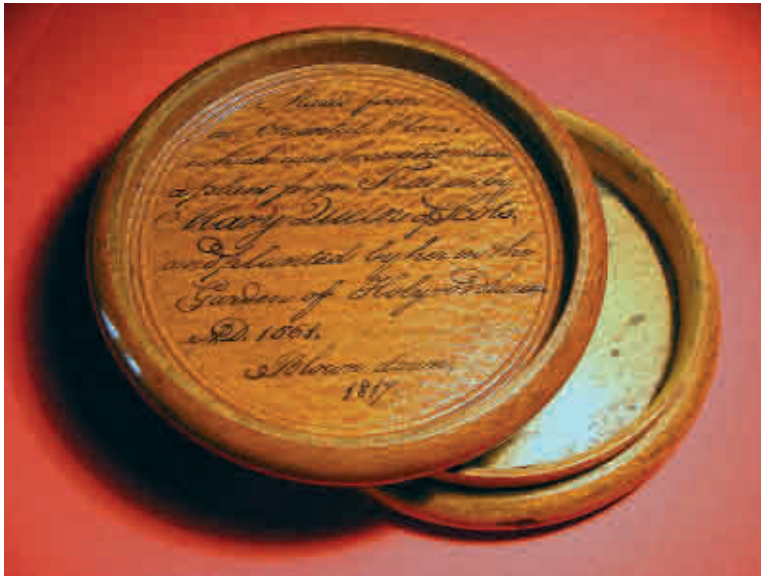 Made from
an Oriental Plane.
which was brought when
a plant from France by
Mary Queen of Scots,
and planted by her in the
Garden of Holyrood House
A.D. 1561.
Blown down,
1817